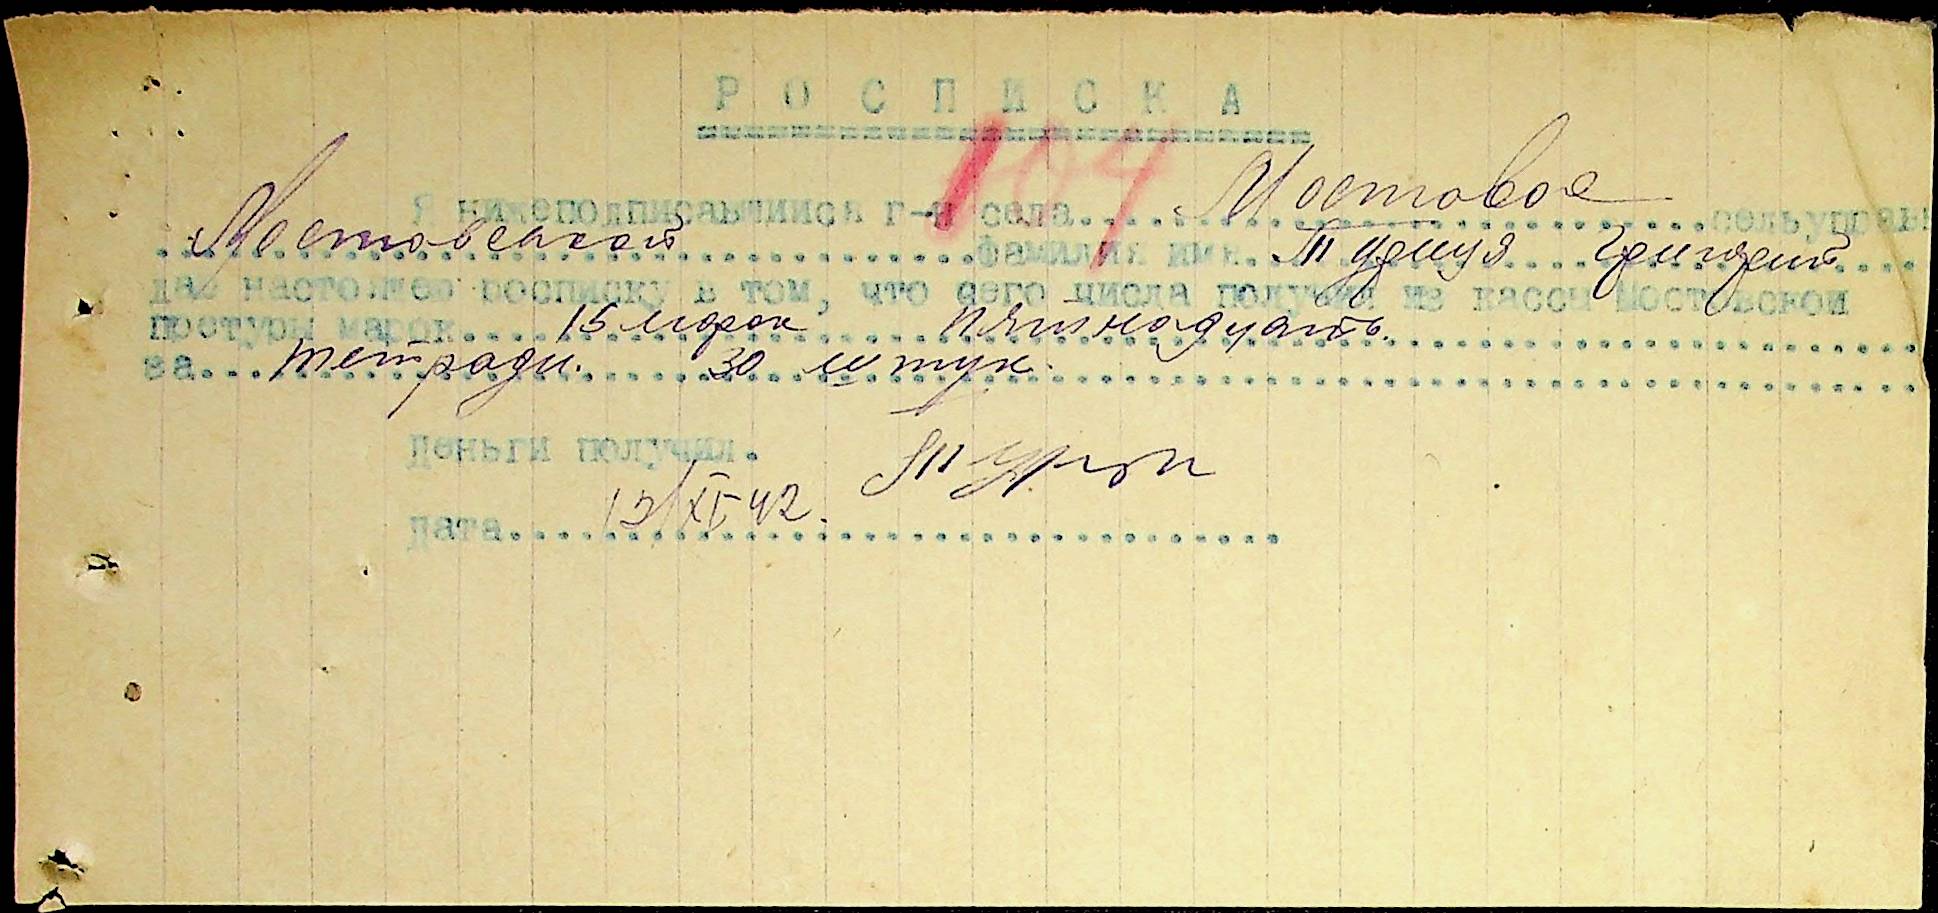 Р О С П И С К А
104
Я нижеподписавшийся г-н села.......Мостовое.......сельуправы
Мостовенской.......фамилия имя.......Григорий
даю настоящею росписку в том, что сего числа получил из кассы Мостовской
простуры марок.......15 марок пятнадцать.
за.......тетради. 30 штук.
Деньги получил.
дата.......12/XI-42.